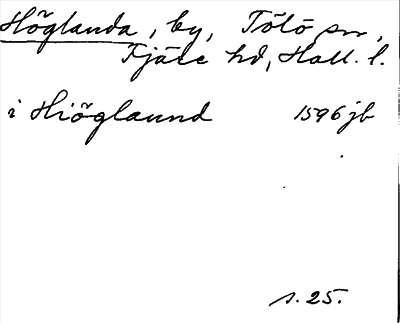 Höglanda, by, Tölö sn,
Fjäre hd, Hall. l.
i Hiöglaund 1596 jb
s. 25.